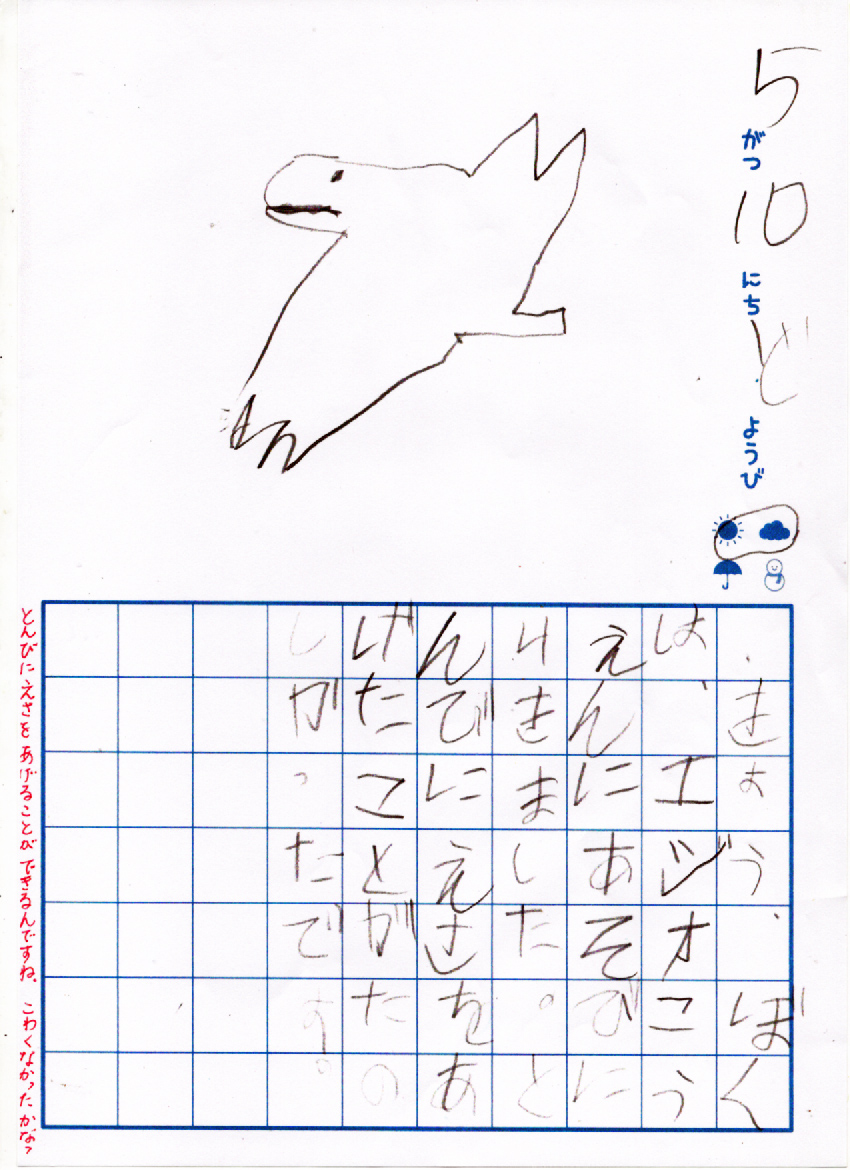 5がつ10にちどようび
きょう、ぼく
は、エジオこう
えんにあそびに
いきました。と
んびにえさをあ
げたことがたの
しがったです。
とんびに えさを あげることが できるんですね。 こわくなかったかな？